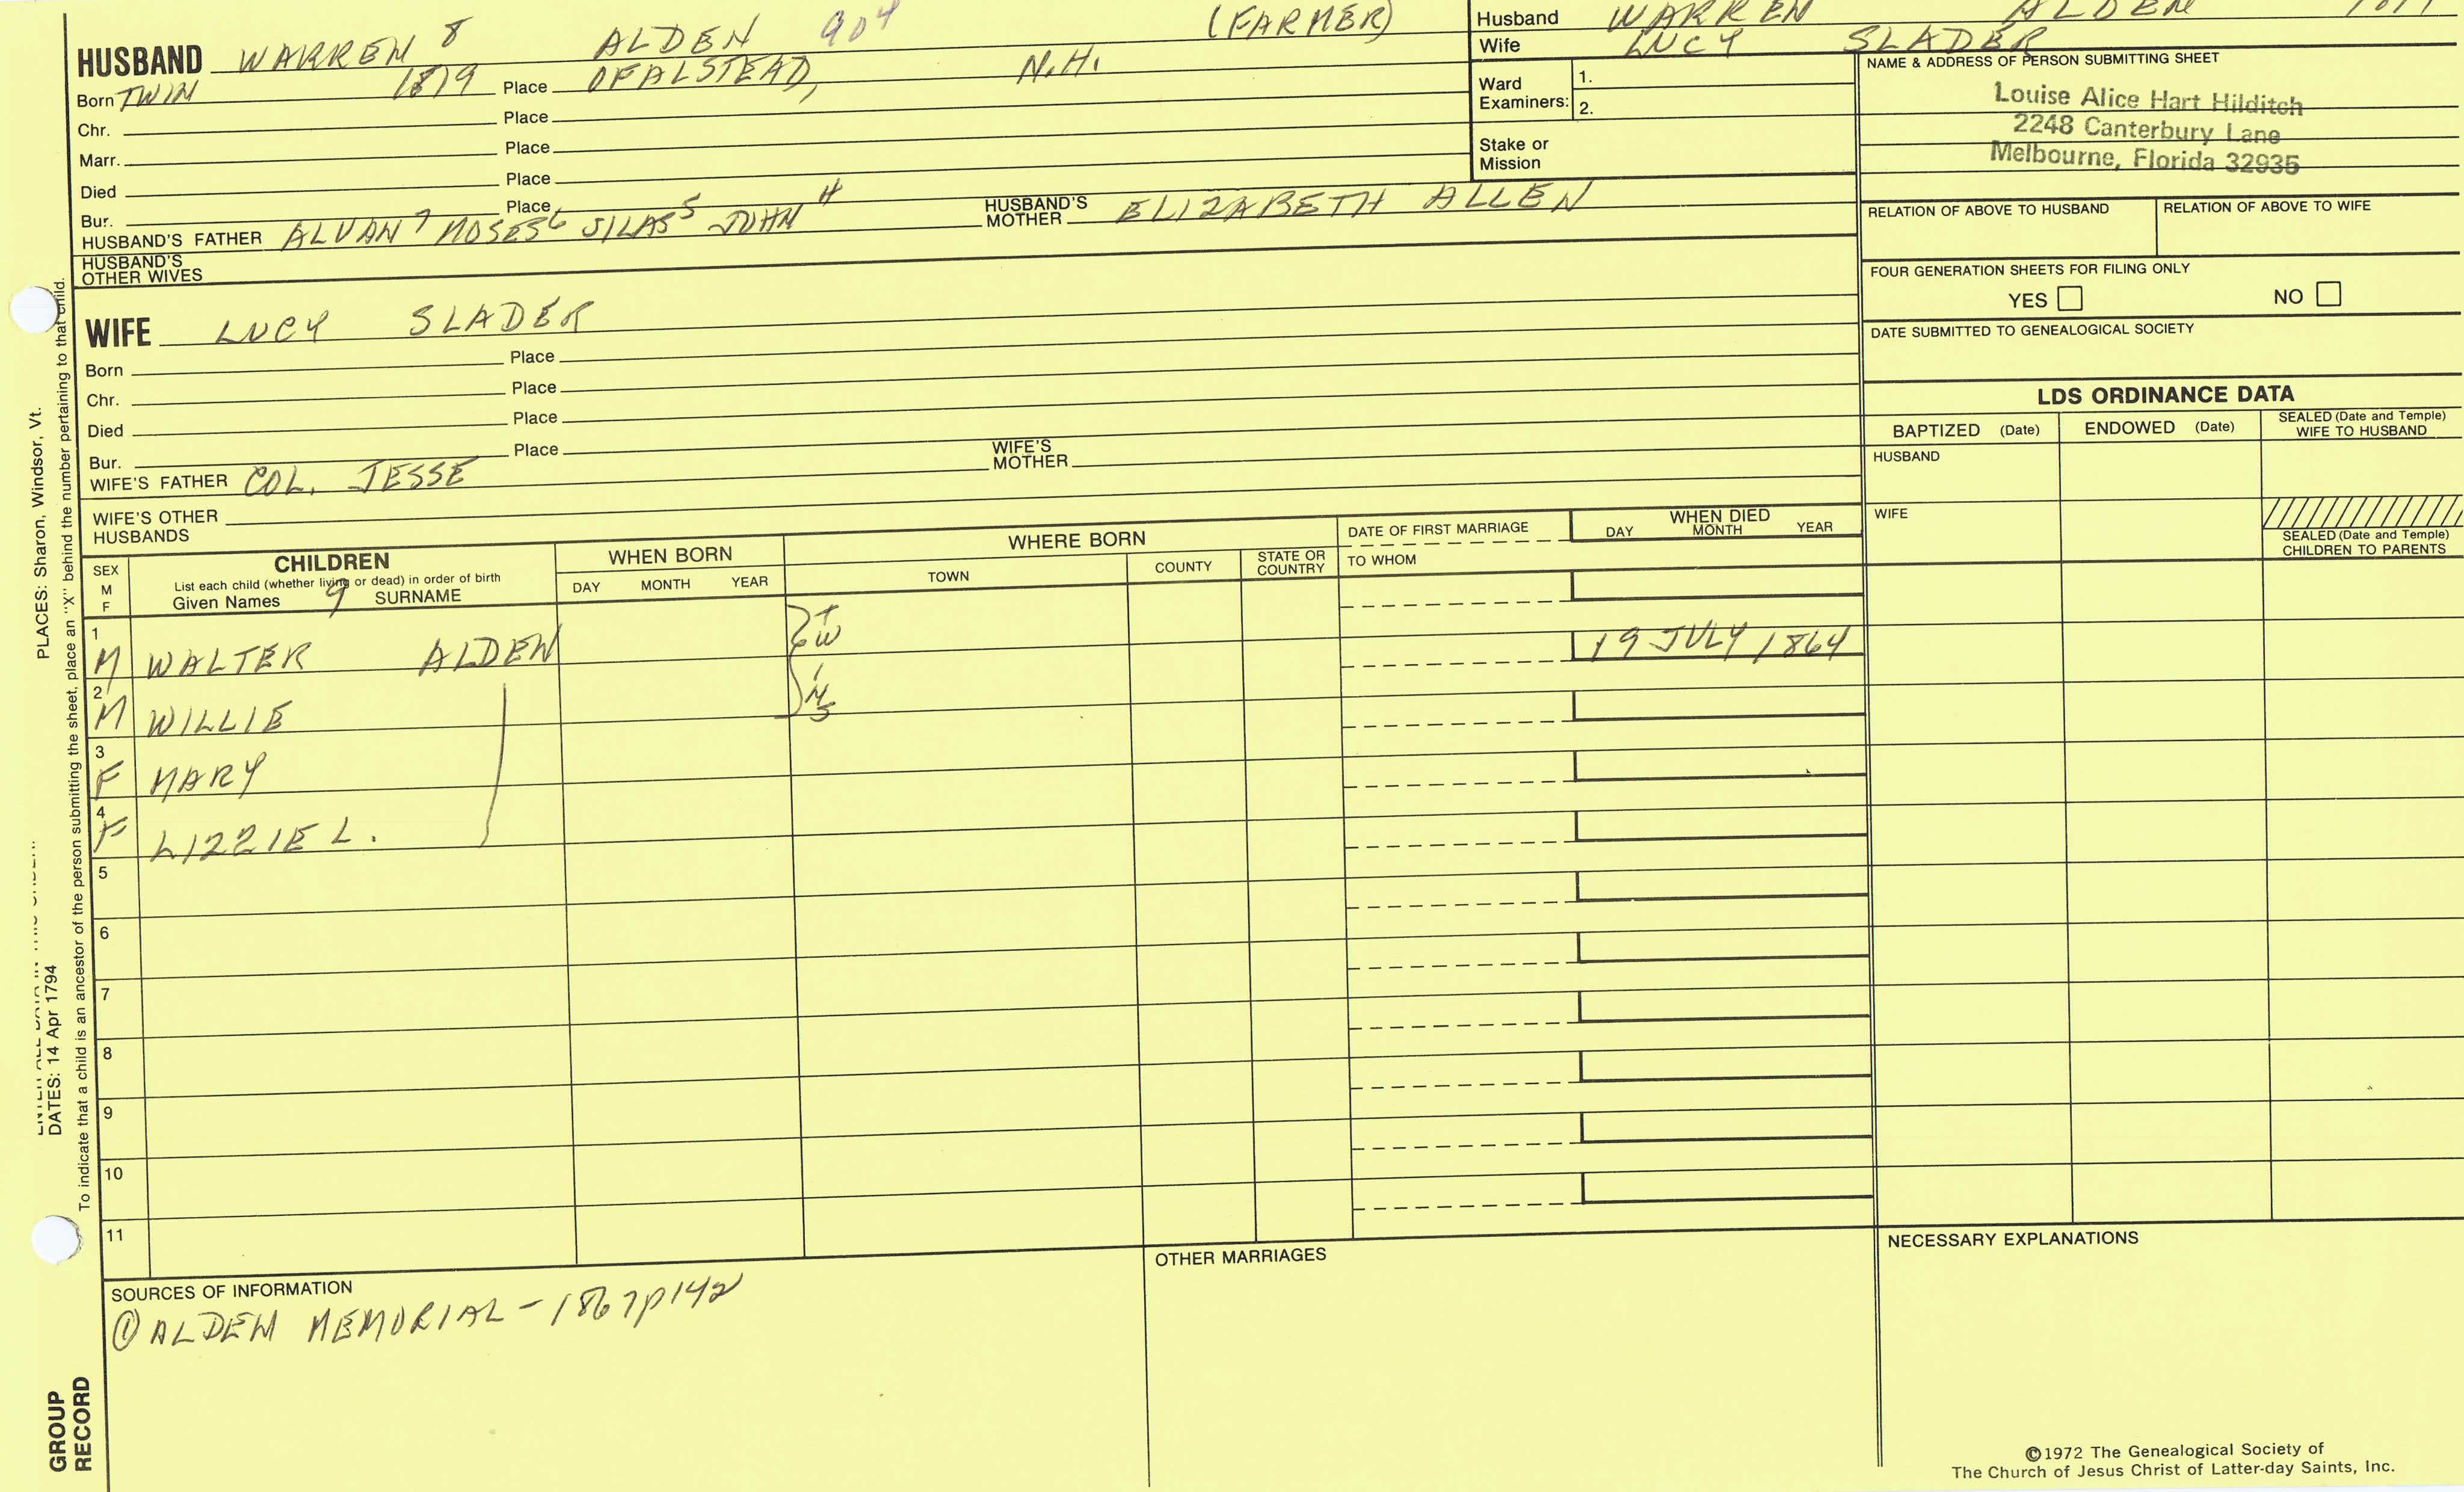 HUSBAND WARREN 8 ALDEN 904 (FARMER)
Born TWIN 1819 Place OF ALSTEAD, N.H.
Chr. Place
Marr. Place
Died Place
Bur. Place
HUSBAND'S FATHER ALVAN 7 MOSES 6 SILAS 5 JOHN 4 HUSBAND'S MOTHER ELIZABETH ALLEN
HUSBAND'S OTHER WIVES
WIFE LUCY SLADER
Born Place
Chr. Place
Died Place
Bur. Place
WIFE'S FATHER COL. JESSE WIFE'S MOTHER
WIFE'S OTHER HUSBANDS
Husband WARREN ALDEN
Wife LUCY SLADER
Ward Examiners: 1.
2.
Stake or Mission
NAME & ADDRESS OF PERSON SUBMITTING SHEET
Louise Alice Hart Hilditch
2248 Canterbury Lane
Melbourne, Florida 32935
RELATION OF ABOVE TO HUSBAND RELATION OF ABOVE TO WIFE
FOUR GENERATION SHEETS FOR FILING ONLY
YES NO
DATE SUBMITTED TO GENEALOGICAL SOCIETY
LDS ORDINANCE DATA
BAPTIZED (Date) ENDOWED (Date) SEALED (Date and Temple) WIFE TO HUSBAND
HUSBAND
WIFE
SEALED (Date and Temple) CHILDREN TO PARENTS
SEX M F
CHILDREN
List each child (whether living or dead) in order of birth
Given Names 9 SURNAME
WHEN BORN
DAY MONTH YEAR
WHERE BORN
TOWN COUNTY STATE OR COUNTRY
DATE OF FIRST MARRIAGE
TO WHOM
WHEN DIED
DAY MONTH YEAR
1 M WALTER ALDEN TWINS 19 JULY 1864
2 M WILLIE
3 F MARY
4 F LIZZIE L.
5
6
7
8
9
10
11
SOURCES OF INFORMATION
① ALDEN MEMORIAL - 1867 p142
OTHER MARRIAGES
NECESSARY EXPLANATIONS
©1972 The Genealogical Society of
The Church of Jesus Christ of Latter-day Saints, Inc.
PLACES: Sharon, Windsor, Vt.
DATES: 14 Apr 1794
To indicate that a child is an ancestor of the person submitting the sheet, place an "X" behind the number pertaining to that child.
GROUP
RECORD